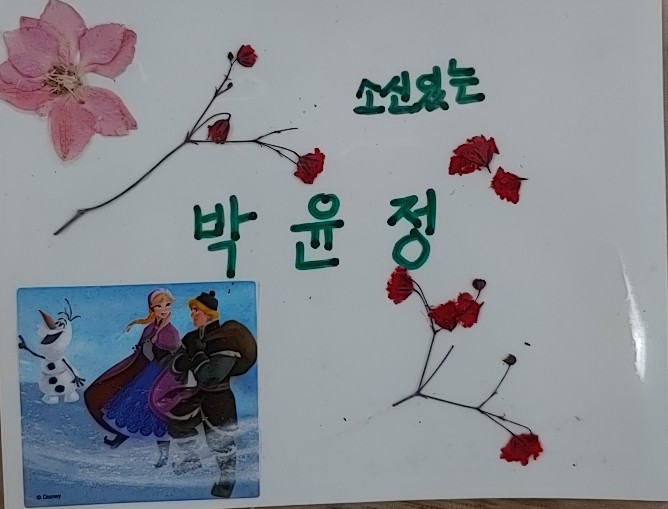 소신있는
박윤정
© Disney